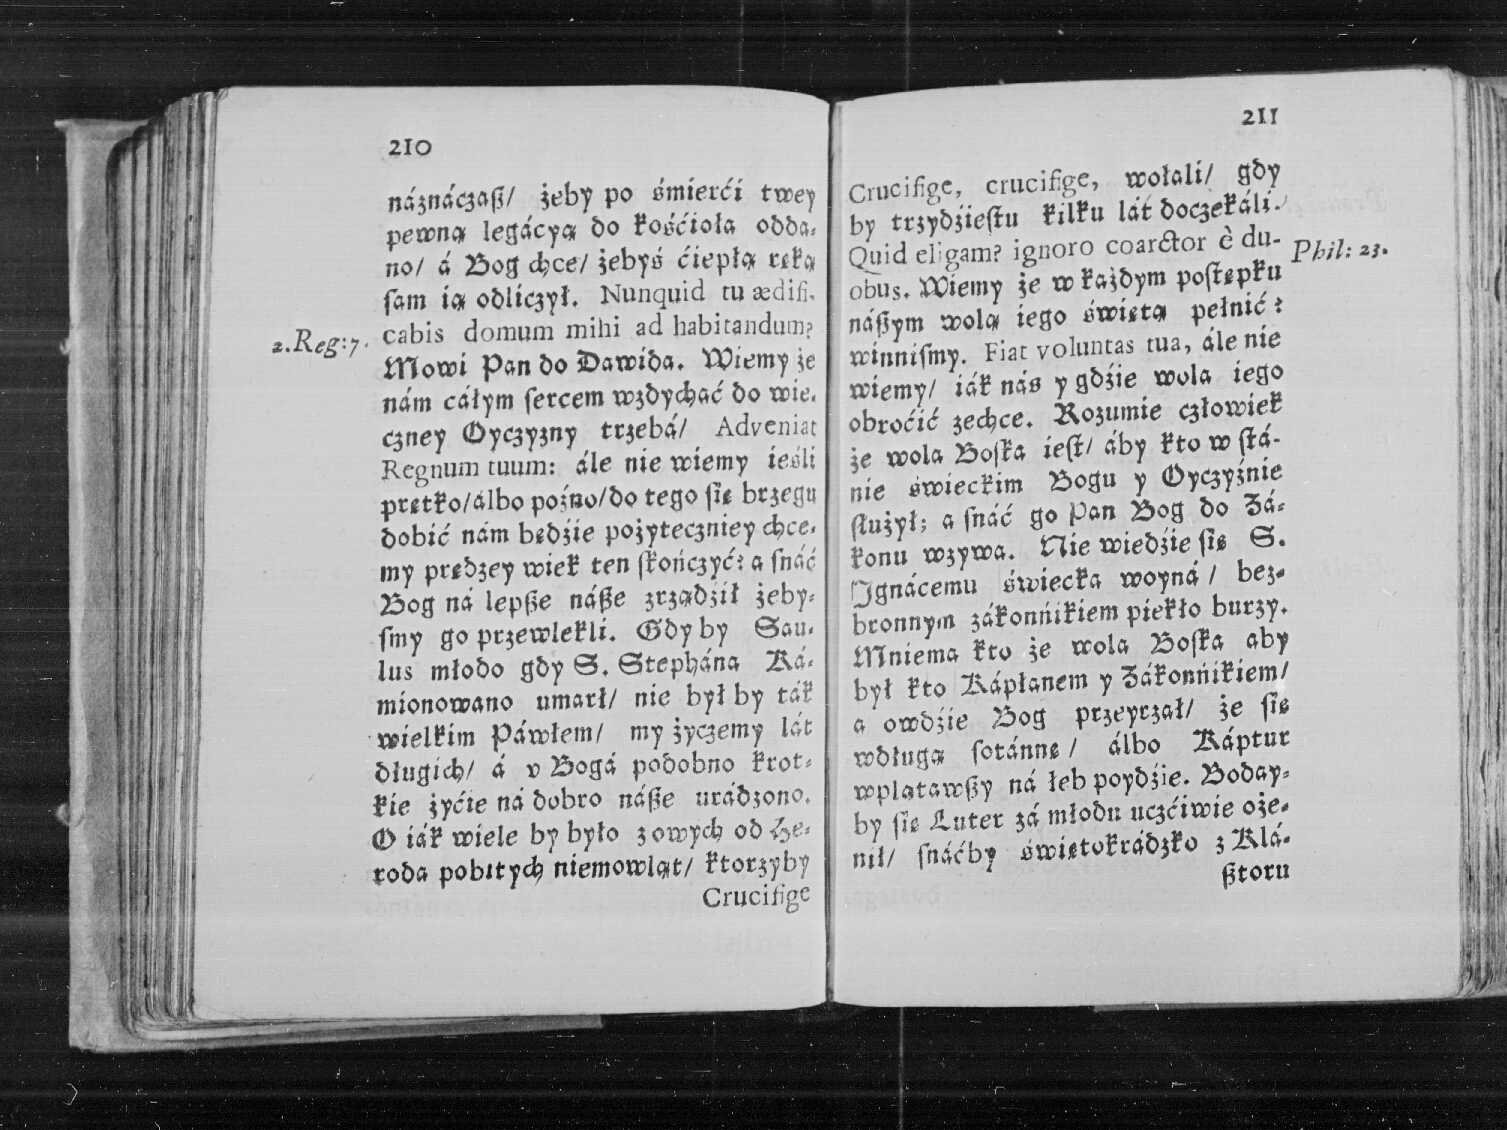 210
náznáczaß/ żeby po śmierći twey
pewną legácyą do kośćioła odda-
no/ á Bog chce/ żebyś ćiepłą ręką
sam ią odliczył. Nunquid tu ædifi-
cabis domum mihi ad habitandum?
2. Reg: 7.
Mowi Pan do Dawida. Wiemy że
nám cáłym sercem wzdycháć do wie-
czney Oyczyzny trzebá/ Adveniat
Regnum tuum: ále nie wiemy ieśli
prętko/álbo poźno/do tego się brzegu
dobić nám będźie pożyteczniey chce-
my prędzey wiek ten skończyć: a snáć
Bog ná lepße náße zrządźił żeby-
smy go przewlekli. Gdy by Sau-
lus młodo gdy S. Stephána Ká-
mionowano umarł/ nie był by ták
wielkim Páwłem/ my życzemy lát
długich/ á v Bogá podobno krot-
kie żyćie ná dobro náße urádzono.
O iák wiele by było z owych od He-
roda pobitych niemowląt/ ktorzyby
Crucifige
211
Crucifige, crucifige, wołali/ gdy
by trzydźiestu kilku lát doczekáli.
Quid eligam? ignoro coarctor è du-
Phil: 23.
obus. Wiemy że w każdym postępku
náßym wolą iego świętą pełnić:
winnismy. Fiat voluntas tua, ále nie
wiemy/ iák nás y gdźie wola iego
obroćić zechce. Rozumie człowiek
że wola Boska iest/ áby kto w stá-
nie świeckim Bogu y Oyczyźnie
służył; a snáć go Pan Bog do Zá-
konu wzywa. Nie wiedźie się S.
Ignácemu świecka woyná/ bez-
bronnym zákonńikiem piekło burzy.
Mniema kto że wola Boska aby
był kto Kápłanem y Zákonńikiem/
a owdźie Bog przeyrzał/ że się
wdługą sotánnę/ álbo Káptur
wplątawßy ná łeb poydźie. Boday-
by się Luter zá młodu uczćiwie oże-
nił/ snáćby świętokrádzko z Klá-
ßtoru